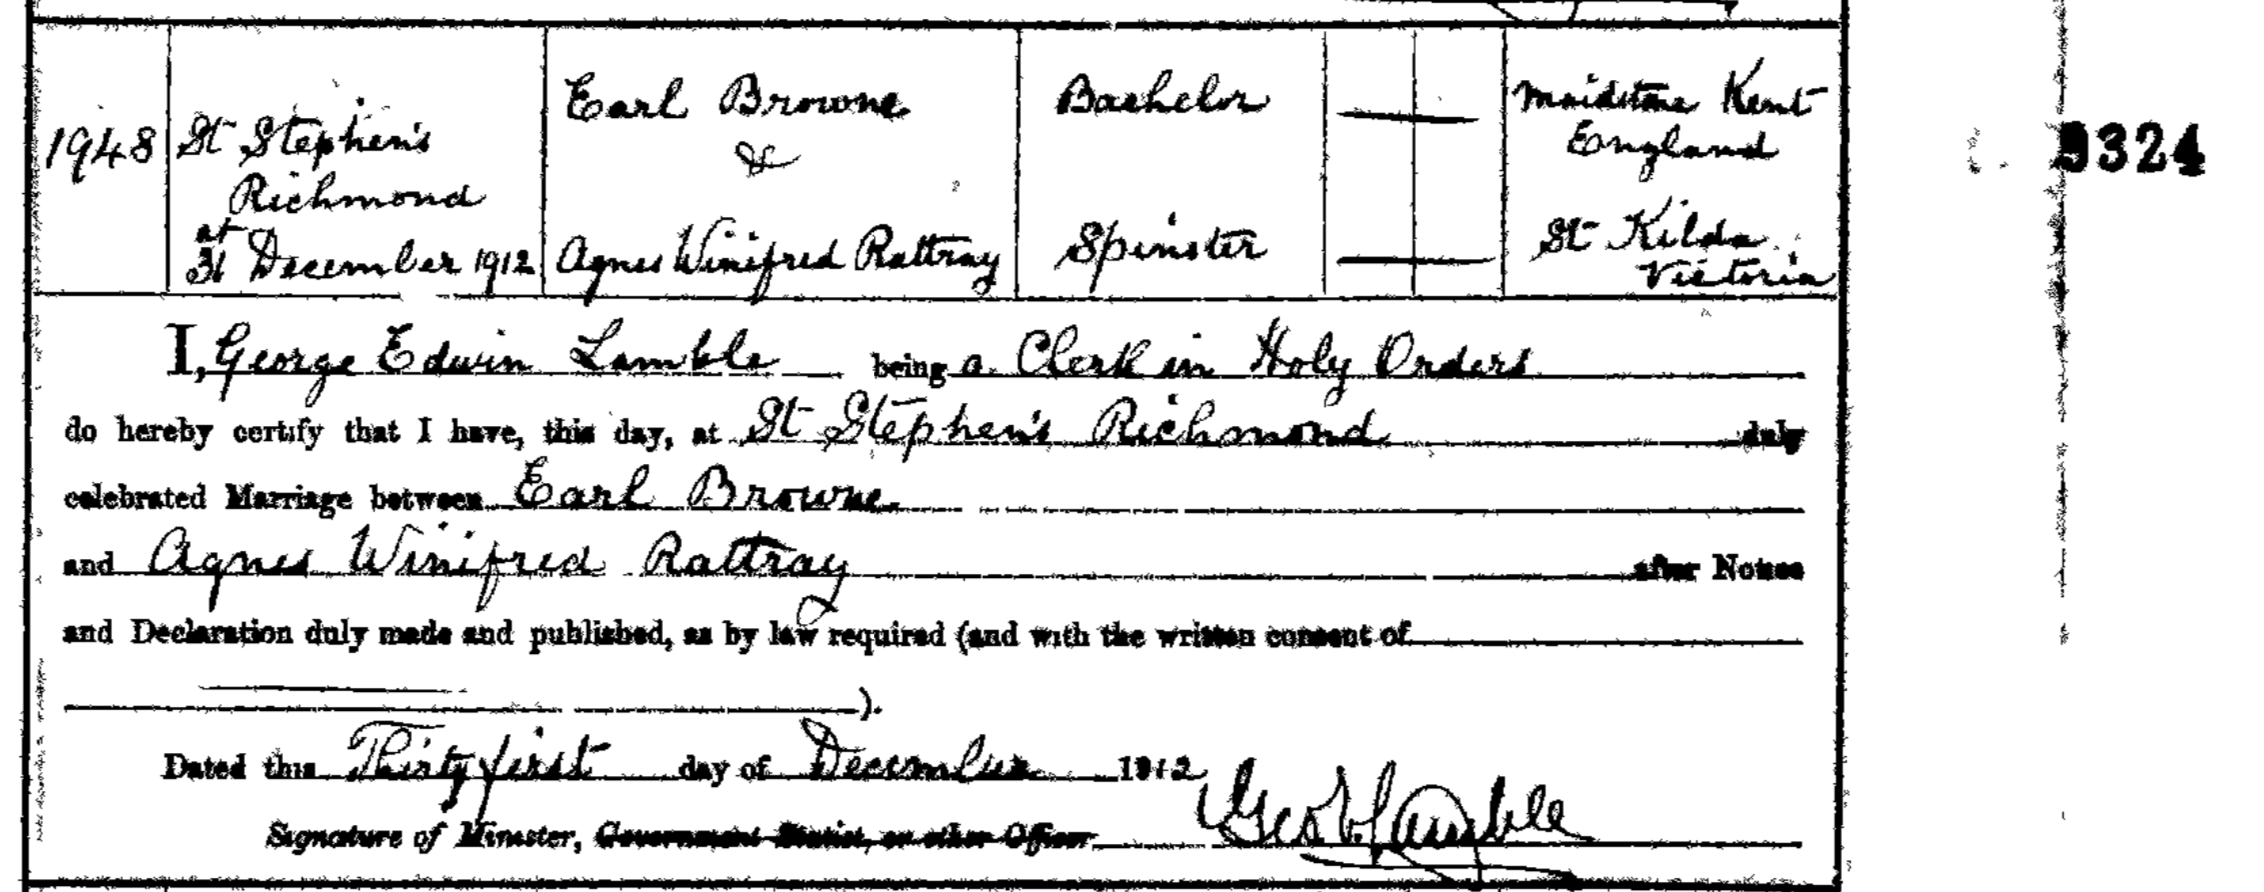 1948
St Stephen's
Richmond
at
31 December 1912
Earl Browne
&
Agnes Winifred Rattray
Bachelor
Spinster
Maidstone Kent
England
St Kilda
Victoria
9324
I, George Edwin Lamble being a Clerk in Holy Orders
do hereby certify that I have, this day, at St Stephen's Richmond duly
celebrated Marriage between Earl Browne
and Agnes Winifred Rattray after Notice
and Declaration duly made and published, as by law required (and with the written consent of
).
Dated this Thirty first day of December 1912
Signature of Minister, Government Statist, or other Officer Geo E Lamble